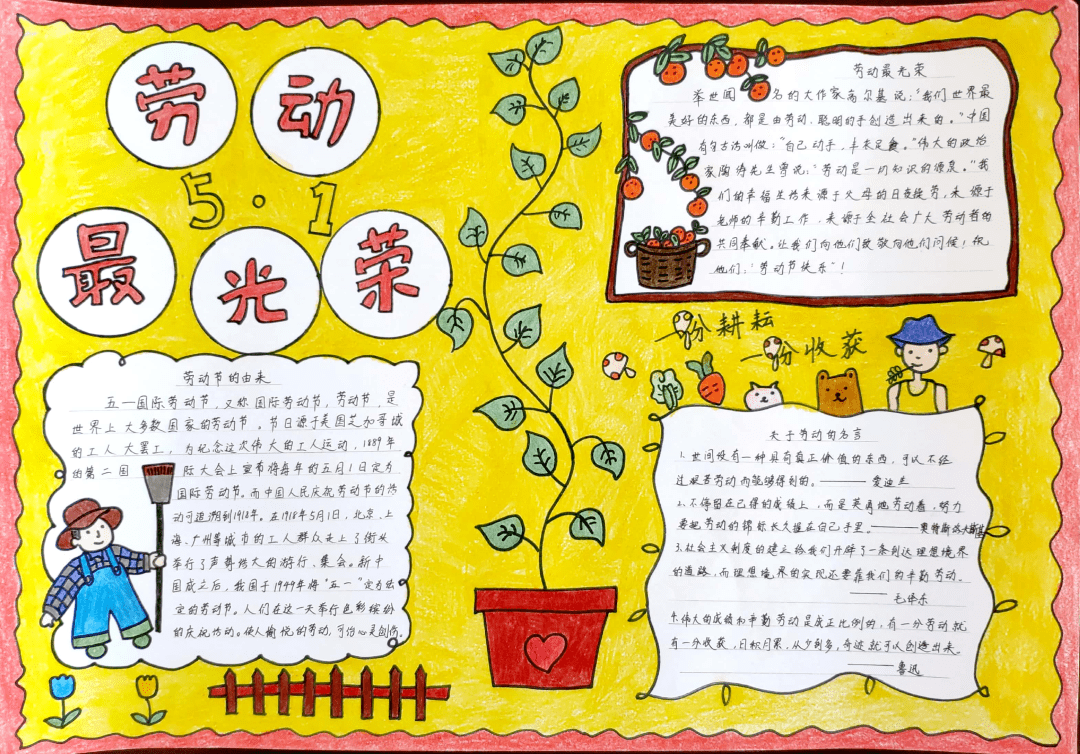 劳动
5·1
最光荣
劳动节的由来
五一国际劳动节,又称国际劳动节,劳动节,是
世界上大多数国家的劳动节,节日源于美国芝加哥城
的工人大罢工,为纪念这次伟大的工人运动,1889年
的第二国际大会上宣布将每年的五月1日定为
国际劳动节。而中国人民庆祝劳动节的活
动可追溯到1918年。在1918年5月1日,北京、上
海、广州等城市的工人群众走上了街头
举行了声势浩大的游行、集会。新中
国成立后,我国于1949年将"五一"定为法
定的劳动节。人们在这一天举行色彩缤纷
的庆祝活动。使人愉悦的劳动,可治心灵创伤。
劳动最光荣
举世闻名的大作家高尔基说:"我们世界最
美好的东西,都是由劳动、聪明的手创造出来的。"中国
有句古话叫做:"自己动手,丰衣足食。"伟大的政治
家陶铸先生曾说:"劳动是一切知识的源泉。"我
们的幸福生活来源于父母的日夜操劳,来源于
老师的辛勤工作、来源于全社会广大劳动者的
共同奉献。让我们向他们致敬向他们问候!祝
他们:"劳动节快乐"!
一份耕耘
一份收获
关于劳动的名言
1.世间没有一种具有真正价值的东西,可以不经
过艰苦劳动而能够得到的。——爱迪生
2.不停留在已得的成绩上,而是英勇地劳动着,努力
要把劳动的锦标长久握在自己手里。——奥特斯洛夫斯基
3.社会主义制度的建立给我们开辟了一条到达理想境界
的道路,而理想境界的实现还要靠我们的辛勤劳动。
——毛泽东
4.伟大的成绩和辛勤劳动是成正比例的,有一分劳动就
有一分收获,日积月累,从少到多,奇迹就可以创造出来。
——鲁迅